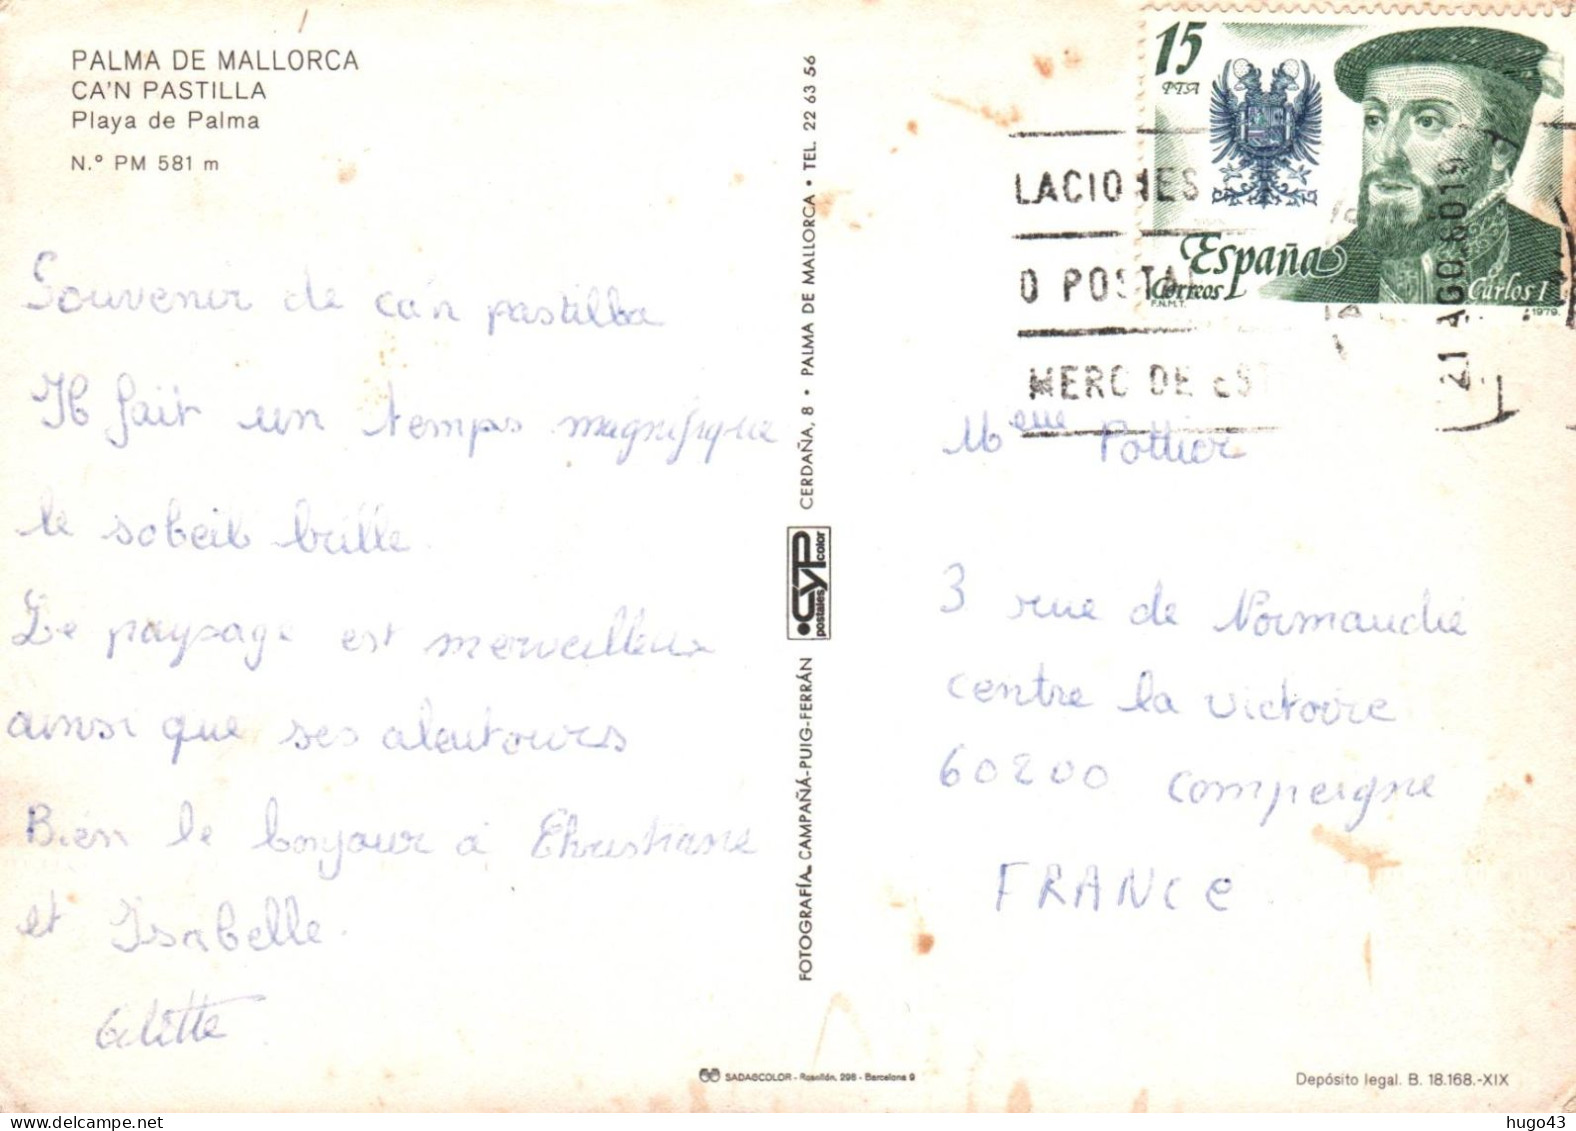 PALMA DE MALLORCA
CA'N PASTILLA
Playa de Palma
N.º PM 581 m
Souvenir de ca'n pastilla
Il fait un temps magnifique
le soleil brille.
Le paysage est merveilleux
ainsi que ses alentours
Bien le bonjour à Christiane
et Isabelle.
FOTOGRAFÍA CAMPAÑÁ-PUIG-FERRÁN
CYP
postales color
CERDAÑA, 8 • PALMA DE MALLORCA • TEL. 22 63 56
15
PTA
España
Correos
Carlos I
F.N.M.T.
1979.
LACIONES
O POSTAL
MERO DE EST
21 AGO.8019
Meme Pottier
3 rue de Normandie
centre la victoire
60200 Compeigne
FRANCE
SADAGCOLOR - Rosellón, 298 - Barcelona 9
Depósito legal. B. 18.168.-XIX
hugo43